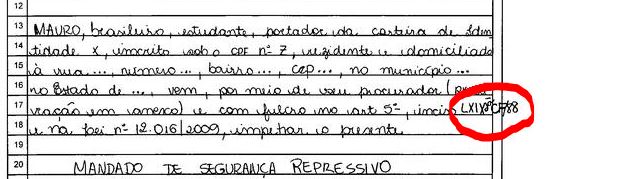 12
13 MAURO, brasileiro, estudante, portador da carteira de Iden
14 tidade X, inscrito sob o CPF nº Z, residente e domiciliado
15 à rua ..., número ..., bairro ..., cep ..., no município ...
16 no Estado de ..., vem, por meio de seu procurador (procu
17 ração em anexo) e com fulcro no art 5º, inciso LXIX CF/88
18 e na Lei nº 12.016/2009, impetrar o presente
19
20 MANDADO DE SEGURANÇA REPRESSIVO